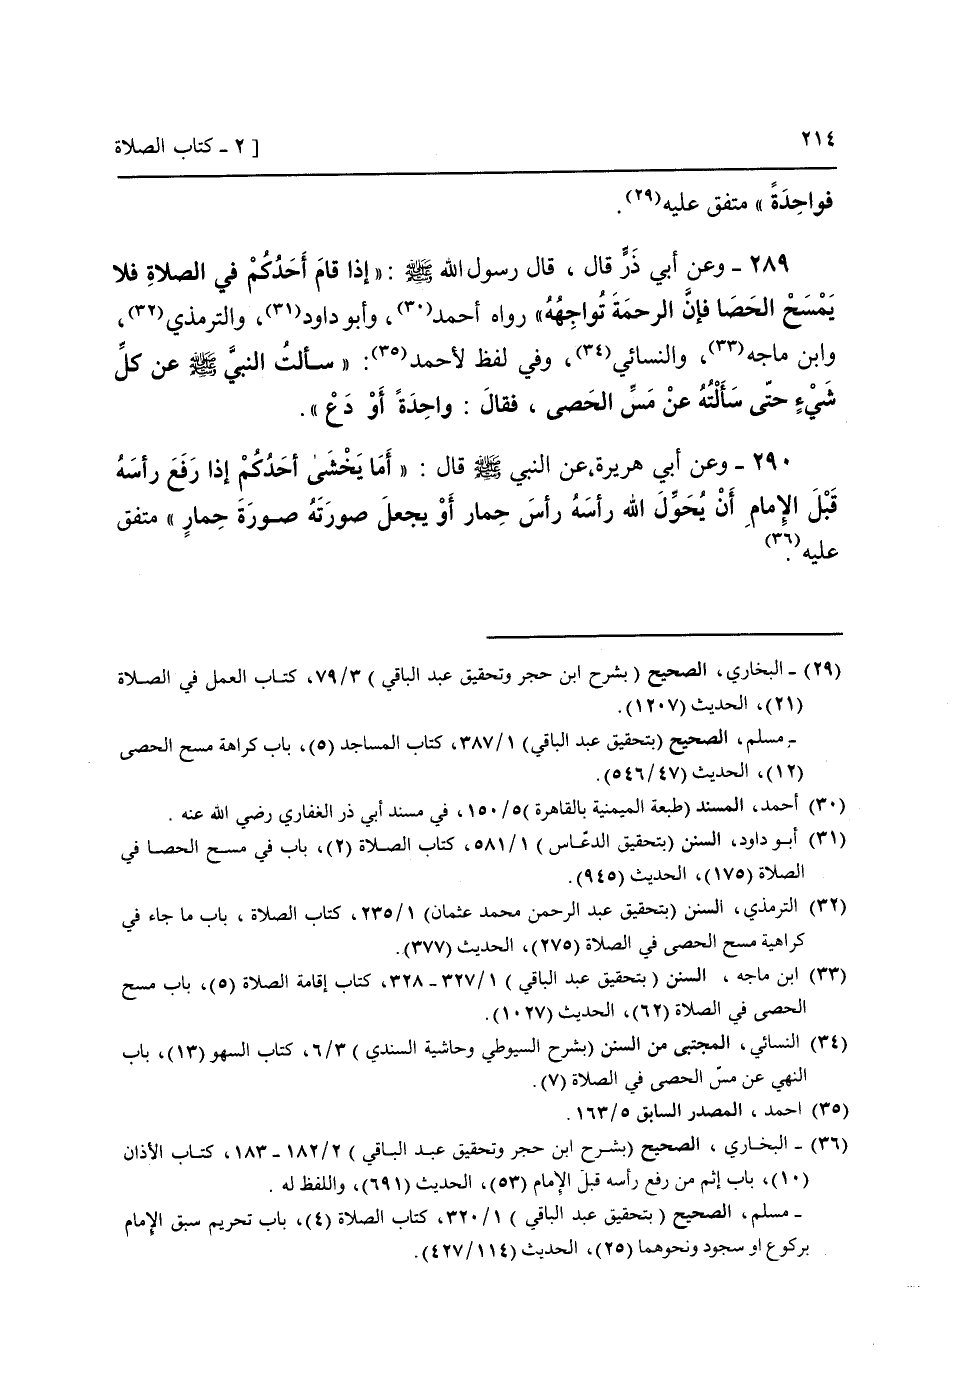 ٢١٤
[ ٢ ـ كتاب الصلاة
فواحِدَةً » متفق عليه(٢٩).
٢٨٩ ـ وعن أبي ذَرٍّ قال ، قال رسول الله ﷺ : « إذا قامَ أَحَدُكُمْ في الصلاةِ فلا
يَمْسَحْ الحَصَا فإنَّ الرحمَةَ تُواجِهُهُ» رواه أحمد(٣٠)، وأبو داود(٣١)، والترمذي(٣٢)،
وابن ماجه(٣٣)، والنسائي(٣٤)، وفي لفظ لأحمد(٣٥): « سـألتُ النبيَّ ﷺ عن كلِّ
شَيْءٍ حتّى سَأَلْتُهُ عنْ مَسِّ الحَصى ، فقالَ : واحِدَةً أَوْ دَعْ » .
٢٩٠ ـ وعن أبي هريرة،عن النبي ﷺ قال : « أَمَا يَخْشَىٰ أحَدُكُمْ إذا رَفَعَ رأسَهُ
قَبْلَ الإمامِ أَنْ يُحَوِّلَ الله رأسَهُ رأسَ حِمار أَوْ يجعلَ صورَتَهُ صـورَةَ حِمارٍ » متفق
عليه(٣٦).
(٢٩) ـ البخاري، الصحيح ( بشرح ابن حجر وتحقيق عبد الباقي ) ٧٩/٣، كتـاب العمل في الصـلاة
(٢١)، الحديث (١٢٠٧).
ـ مسلم، الصحيح (بتحقيق عبد الباقي) ٣٨٧/١، كتاب المساجد (٥)، باب كراهة مسح الحصى
(١٢)، الحديث (٥٤٦/٤٧).
(٣٠) أحمد، المسند (طبعة الميمنية بالقاهرة )١٥٠/٥، في مسند أبي ذر الغفاري رضي الله عنه .
(٣١) أبـو داود، السنن (بتحقيق الدعّـاس ) ٥٨١/١، كتاب الصـلاة (٢)، باب في مسـح الحصـا في
الصلاة (١٧٥)، الحديث (٩٤٥).
(٣٢) الترمذي، السنن (بتحقيق عبد الرحمن محمد عثمان) ٢٣٥/١، كتاب الصلاة ، باب ما جاء في
كراهية مسح الحصى في الصلاة (٢٧٥)، الحديث (٣٧٧).
(٣٣) ابن ماجه ، السنن ( بتحقيق عبد الباقي ) ٣٢٧/١ ـ ٣٢٨، كتاب إقامة الصلاة (٥)، باب مسح
الحصى في الصلاة (٦٢)، الحديث (١٠٢٧).
(٣٤) النسائي، المجتبى من السنن (بشرح السيوطي وحاشية السندي ) ٦/٣، كتاب السهو (١٣)، باب
النهي عن مسّ الحصى في الصلاة (٧).
(٣٥) احمد ، المصدر السابق ١٦٣/٥ .
(٣٦) ـ البخـاري ، الصحيح (بشـرح ابن حجر وتحقيق عبـد البـاقي ) ١٨٢/٢ ـ ١٨٣، كتـاب الأذان
(١٠)، باب إثم من رفع رأسه قبل الإمام (٥٣)، الحديث (٦٩١)، واللفظ له .
ـ مسلم، الصحيح ( بتحقيق عبد الباقي ) ٣٢٠/١، كتاب الصلاة (٤)، باب تحريم سبق الإمام
بركوع او سجود ونحوهما (٢٥)، الحديث (٤٢٧/١١٤).